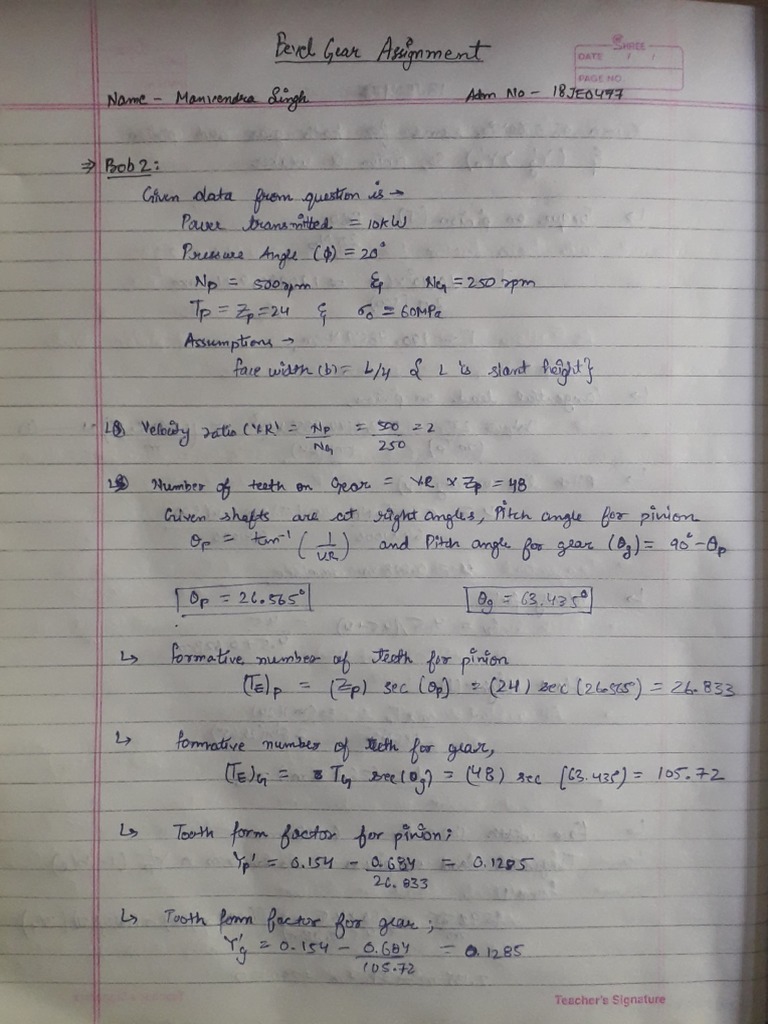 Bevel Gear Assignment
SHREE
DATE / /
PAGE NO.
Name - Manvendra Singh Adm No - 18JE0497
⇒ Bob 2:
Given data from question is →
Power transmitted = 10kW
Pressure Angle (ϕ) = 20°
Np = 500rpm & NG = 250 rpm
Tp = Zp = 24 & σo = 60MPa
Assumptions →
face width (b) = L/4 { L is slant height}
↳ Velocity ratio (VR) = Np/NG = 500/250 = 2
↳ Number of teeth on Gear = VR × Zp = 48
Given shafts are at right angles, Pitch angle for pinion
θp = tan⁻¹ (1/VR) and Pitch angle for gear (θg) = 90° - θp
θp = 26.565° θg = 63.435°
↳ formative number of teeth for pinion
(TE)p = (Zp) sec (θp) = (24) sec (26.565) = 26.833
↳ formative number of teeth for gear,
(TE)G = TG sec(θg) = (48) sec (63.435) = 105.72
↳ Tooth form factor for pinion;
Yp' = 0.154 - 0.684/26.833 = 0.1285
↳ Tooth form factor for gear;
Y'g = 0.154 - 0.684/105.72 = 0.1285
Teacher's Signature